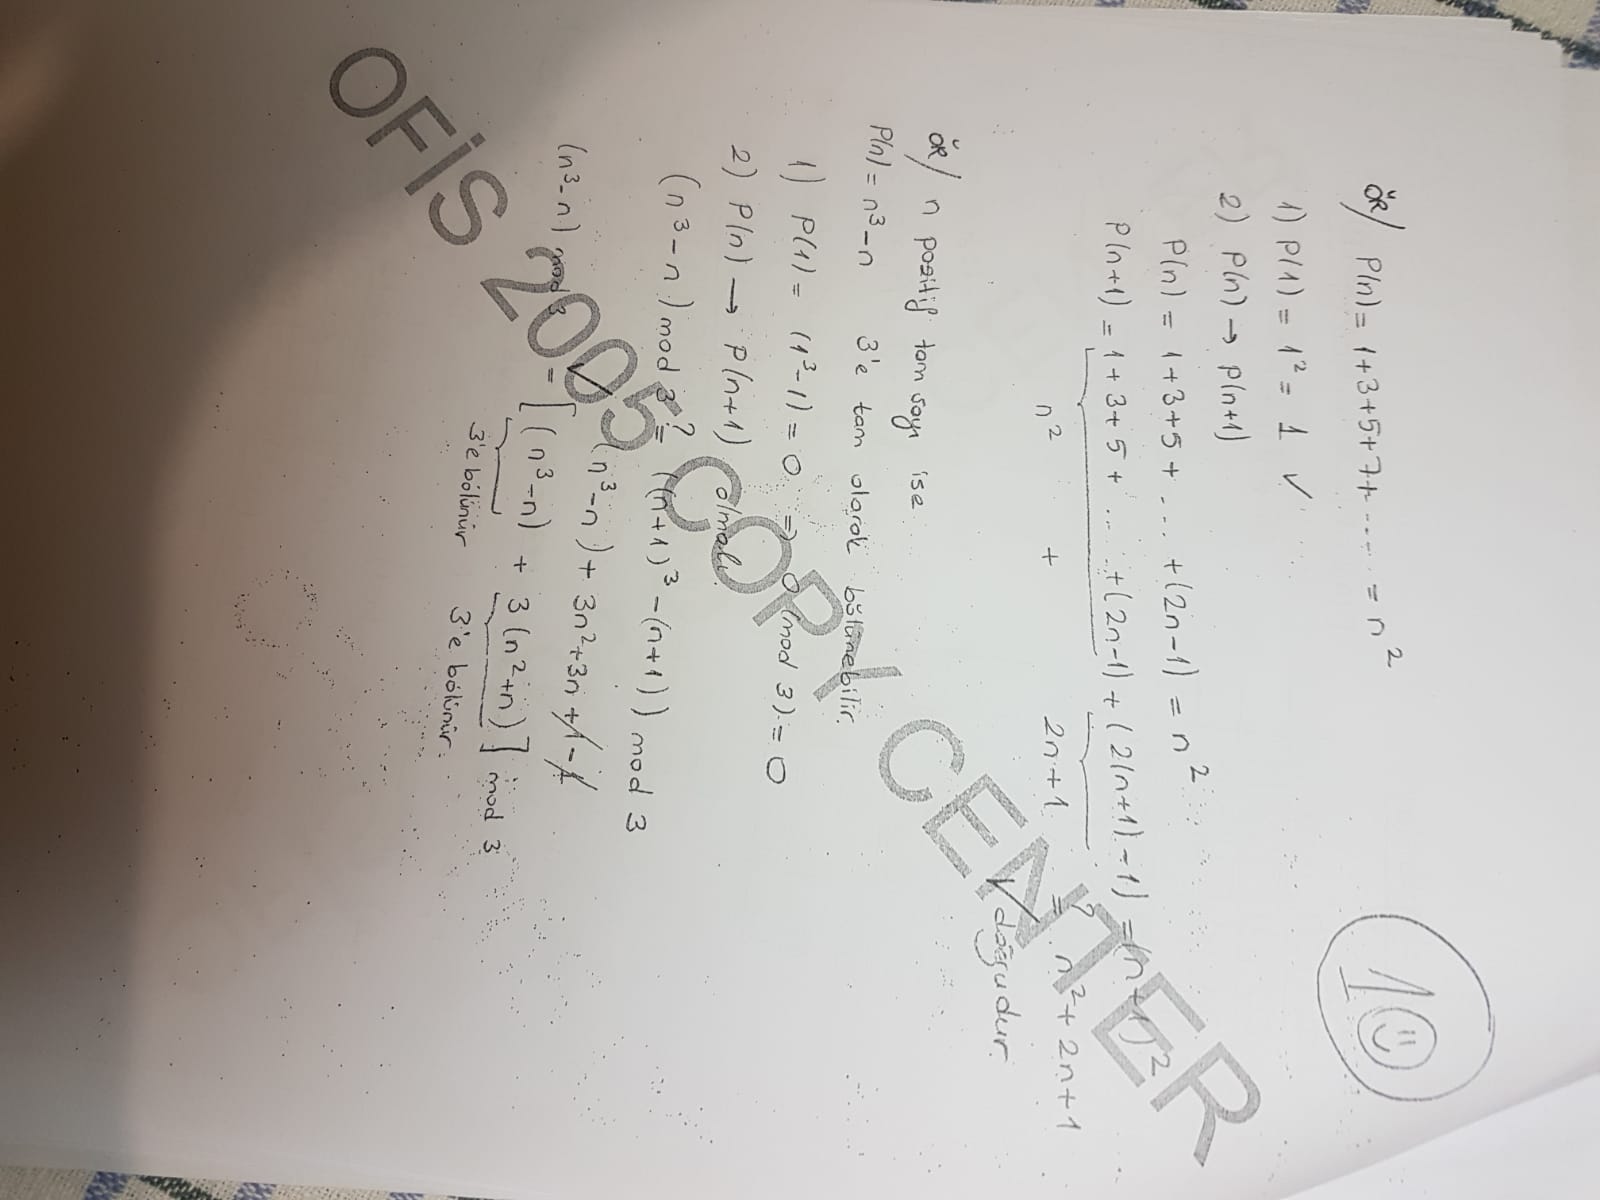 10
ÖR/ P(n) = 1+3+5+7+ ..... = n²
1) P(1) = 1² = 1 ✓
2) P(n) → P(n+1)
P(n) = 1+3+5+ ... +(2n-1) = n²
P(n+1) = 1+3+5+ ... +(2n-1) + (2(n+1)-1) = (n+1)²
n² + 2n+1 ≟ n²+2n+1
✓ doğrudur.
ÖR/ n pozitif tam sayı ise
P(n) = n³-n 3'e tam olarak bölünebilir.
1) P(1) = (1³-1) = 0 ⇒ 0 (mod 3) = 0
2) P(n) → P(n+1) olmalı.
(n³-n) mod 3 ≟ ((n+1)³-(n+1)) mod 3
(n³-n) + 3n²+3n+1-1
(n³-n) mod 3 ✓= [(n³-n) + 3(n²+n)] mod 3
3'e bölünür 3'e bölünür.
OFİS 2005 COPY CENTER